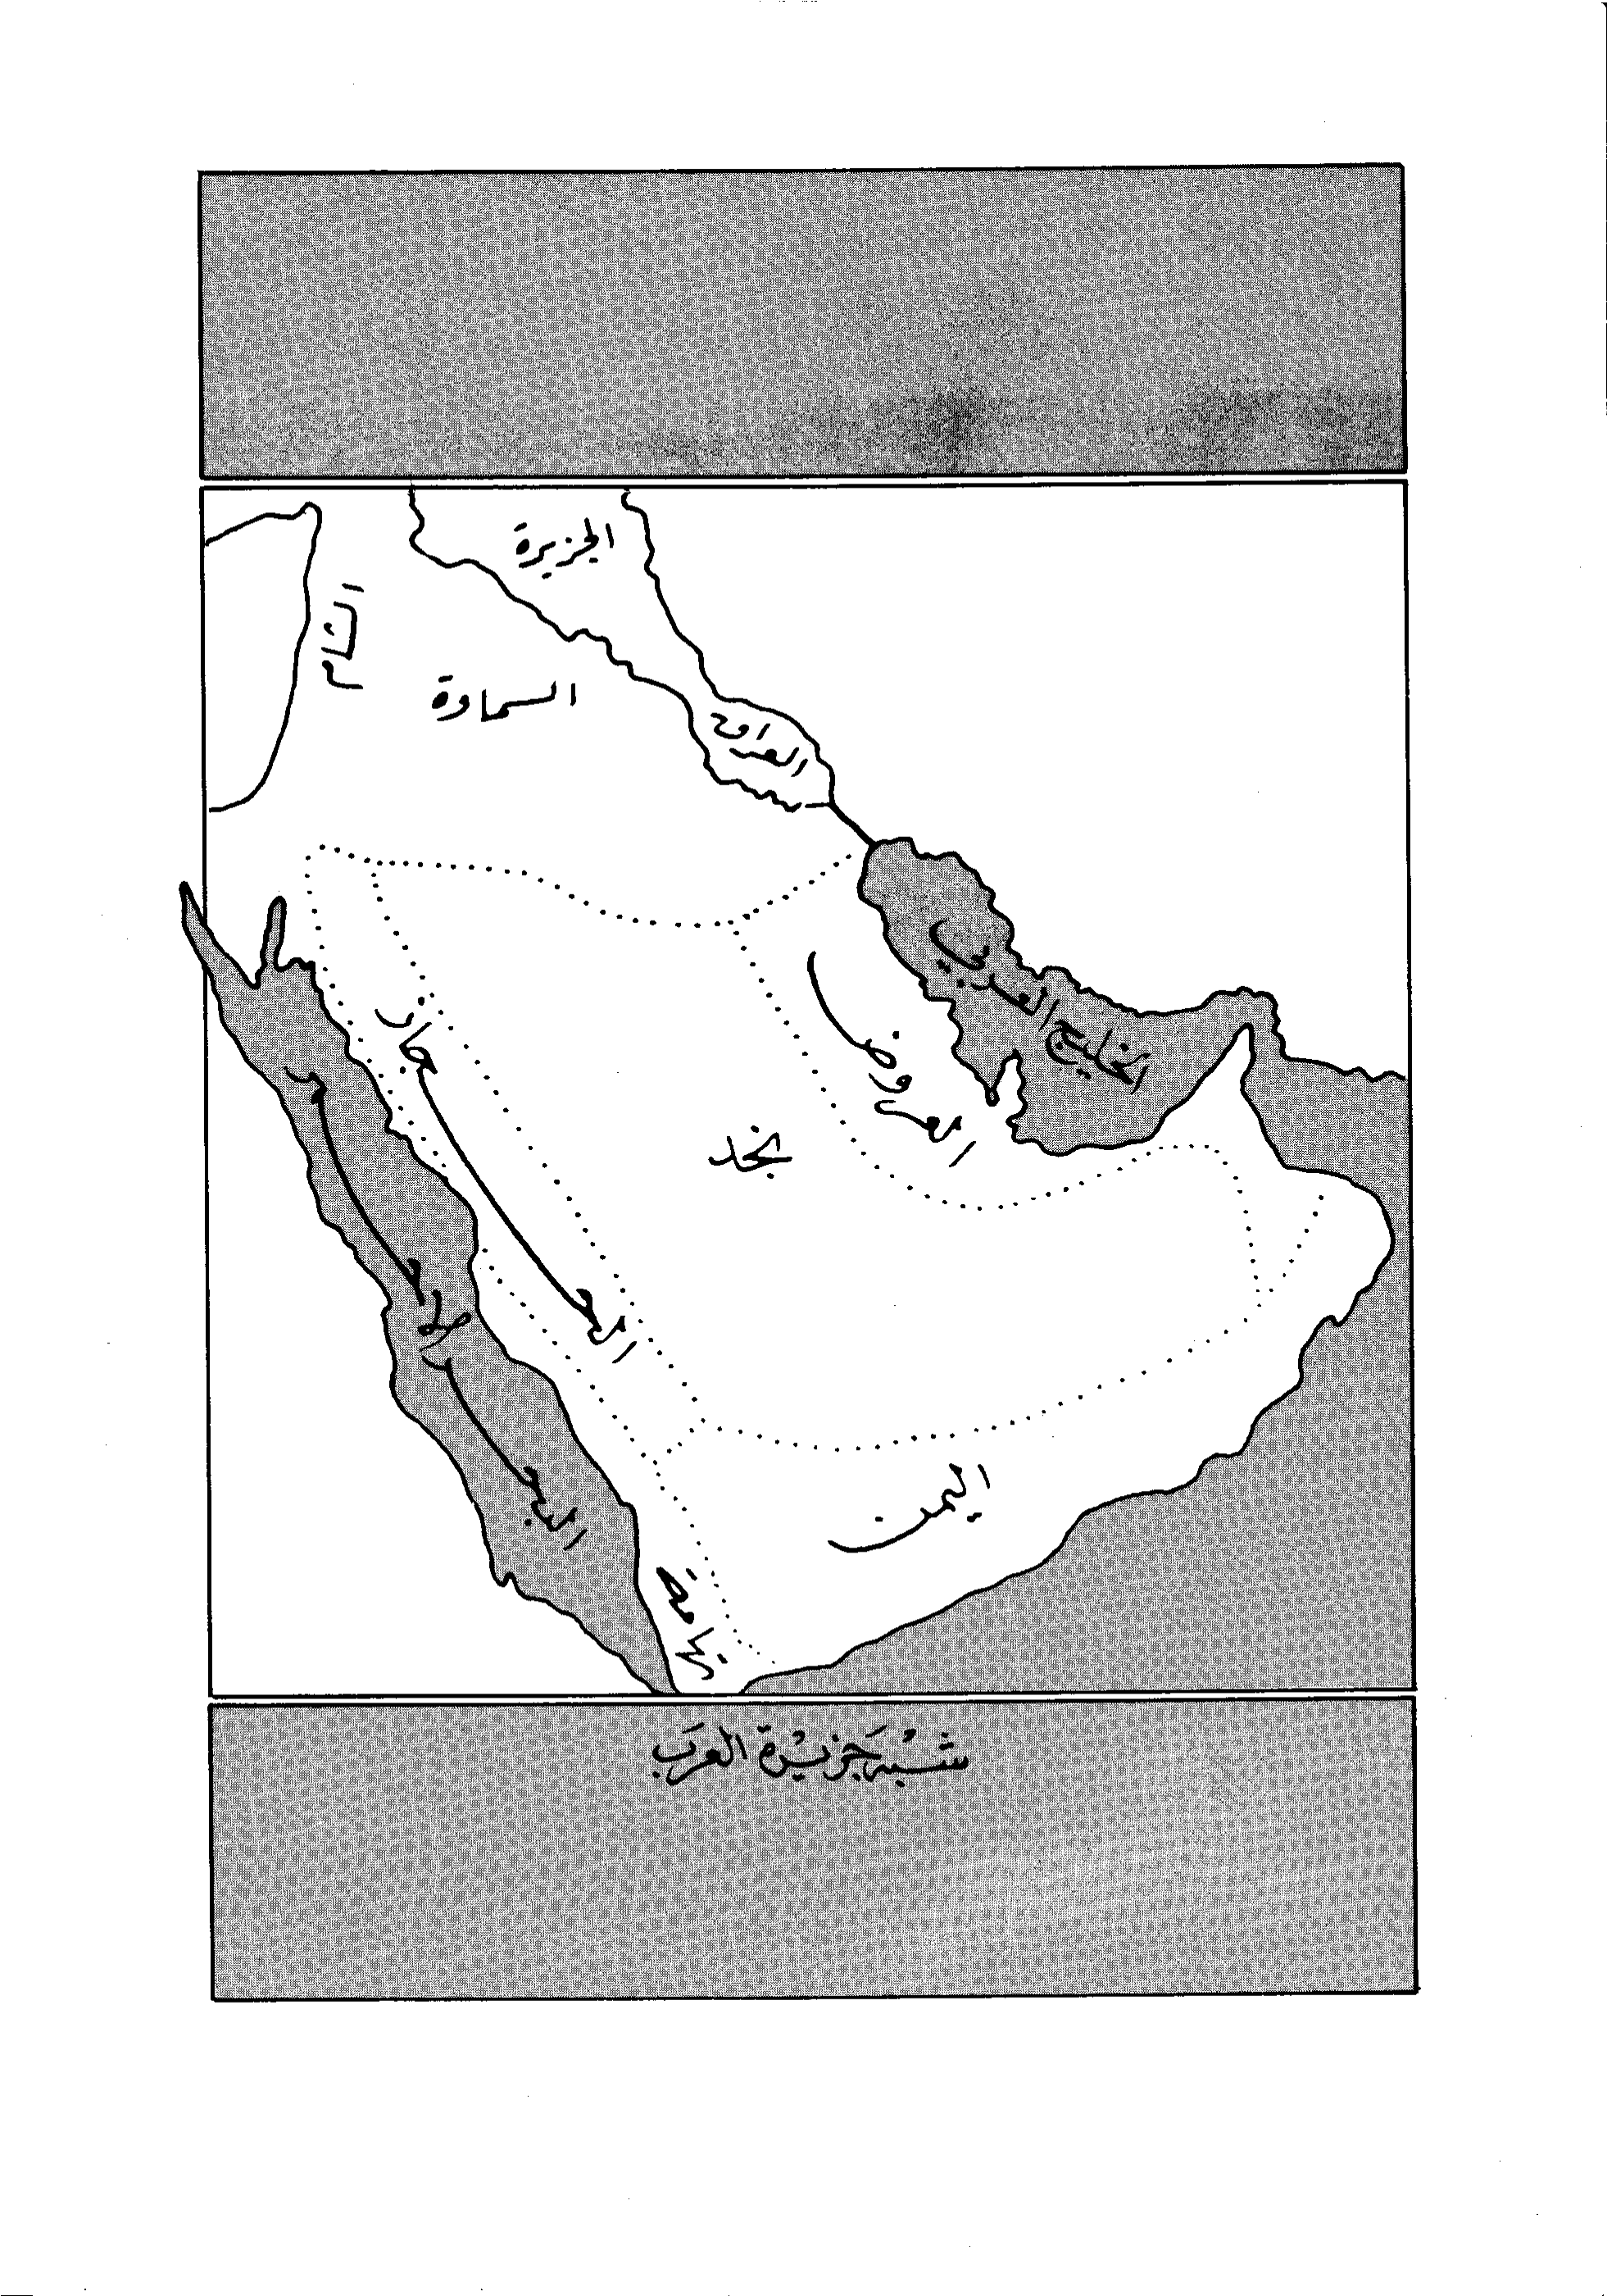 الجزيرة
الشام
السماوة
العراق
الخليج العربي
العروض
الحجاز
نجد
البحر الأحمر
اليمن
تهامة
شبْه جَزيْرة العَرَب